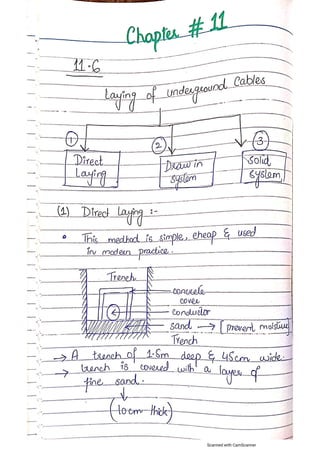 Chapter # 11
11.6
Laying of underground Cables
1
2
3
Direct Laying
Draw in system
Solid system
(1) Direct Laying :-
• This medhod is simple, cheap & used
in modern practice.
Trench
concrete cover
conductor
sand → [prevent moisture]
Trench
→ A trench of 1.5m deep & 45cm wide.
→ trench is covered with a layer of
fine sand.
(10cm thick)
Scanned with CamScanner